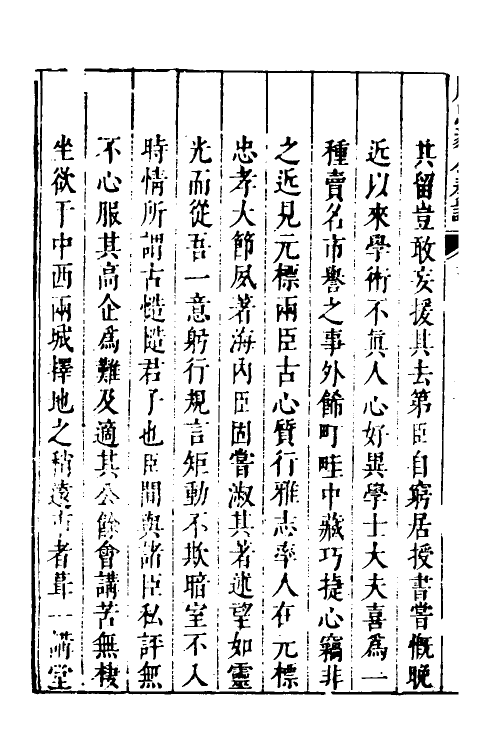 其留豈敢妄援其去第臣自窮居授書嘗慨晚
近以來學術不眞人心好異學士大夫喜爲一
種賣名市譽之事外飾町畦中藏巧捷心竊非
之近見元標兩臣古心質行雅志率人在元標
忠孝大節夙著海內臣固嘗淑其著述望如靈
光而從吾一意躬行規言矩動不欺暗室不入
時情所謂古慥慥君子也臣間與諸臣私評無
不心服其高企爲難及適其公餘會講苦無棲
坐欲于中西兩城擇地之稍遠市者葺一講堂